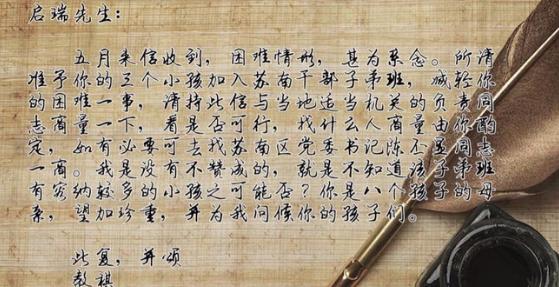 启瑞先生：
五月来信收到，困难情形，甚为系念。所请
准予你的三个小孩加入苏南干部子弟班，减轻你
的困难一事，请持此信与当地适当机关的负责同
志商量一下，看是否可行，找什么人商量由你酌
定，如有必要可去找苏南区党委书记陈丕显同志
一商。我是没有不赞成的，就是不知道该子弟班
有容纳较多的小孩之可能否？你是八个孩子的母
亲，望加珍重，并为我问候你的孩子们。
此复，并颂
教祺